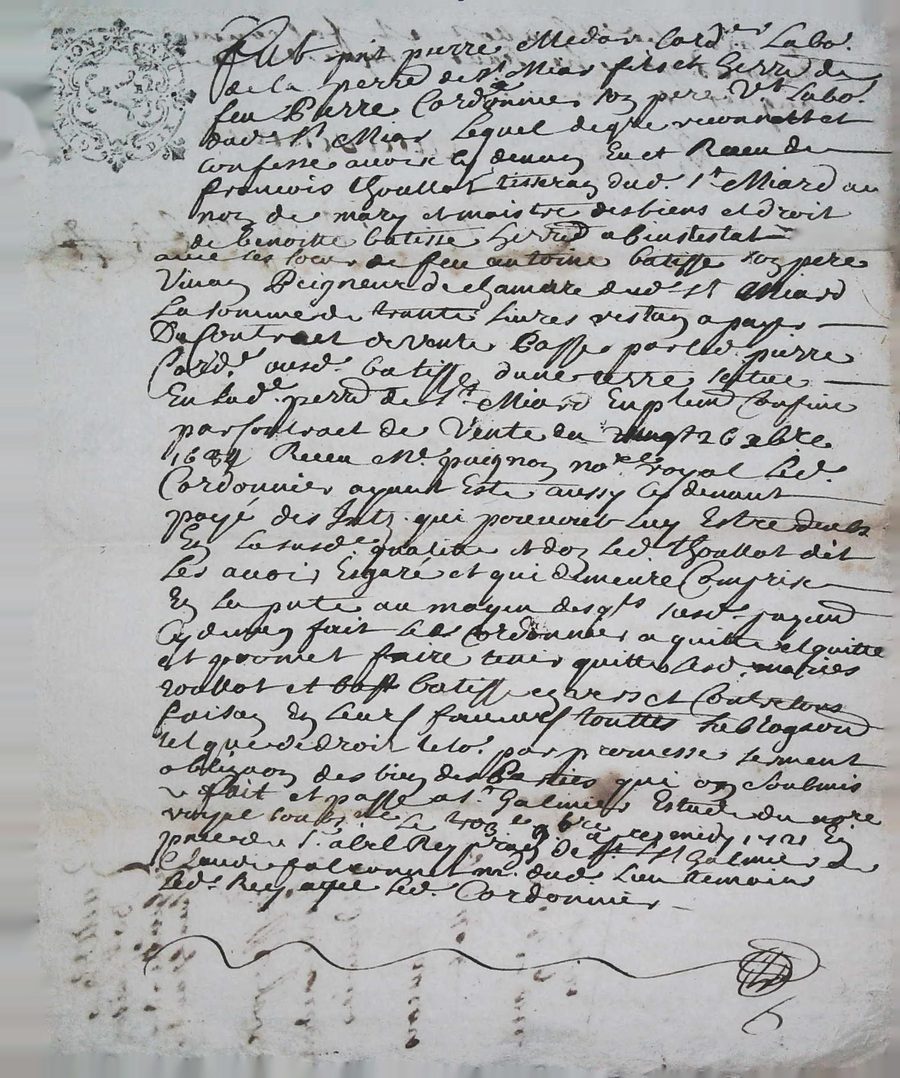 Fut pnt pierre Medar Cord.er Labo.
de la perre de St Miar fils et herre de
feu Pierre Cordonnier son pere Vt Labo.
dud. St Miar lequel de gre reconnoit et
confesse avoir cy devant Eu et Receu de
francois thoullot tisseran dud. St Miard au
nom de mary et maistre des biens et droit
de benoitte batisse herred abinstestat
avec ses soeurs de feu antoine batisse son pere
Vivan Peigneur de chamvre dud. St Miard
La somme de trante livres restan a payer
Du Contract de vente Passe par led. pierre
Cord.r ausd. batisse dune terre scituee
En lad. perre de St Miard En plein Confine
par Contract de Vente du 26 xbre
1684 Receu Me paignon no.re royal Led.
Cordonnier ayant Este aussy cy devant
payé des Intz qui pouvoient Luy Estre deubs
En La susd. qualitte et don led. thoullot dit
Les avoir Esgaré et qui demeure Compris
En la pnte au moyen desqls susd. payemt
Cy devan fait led. Cordonnier a quitte et quitte
et promet faire tenir quitte lesd. mariés
toullot et batisse envers et Contre tous
faisan En leurs faveurs touttes
tel que de droit par promesse serment
obligaon des biens des Parties qui on Soubmis
fait et passe a St Galmier Estude du no.re
royal soubz.ne Le 9bre apres midy 1721 En
pnce de Sr abel Rey prat.n de St Galmier &
Claude falconnet m. dud. Lieu temoins
led. Rey avec led. Cordonnier